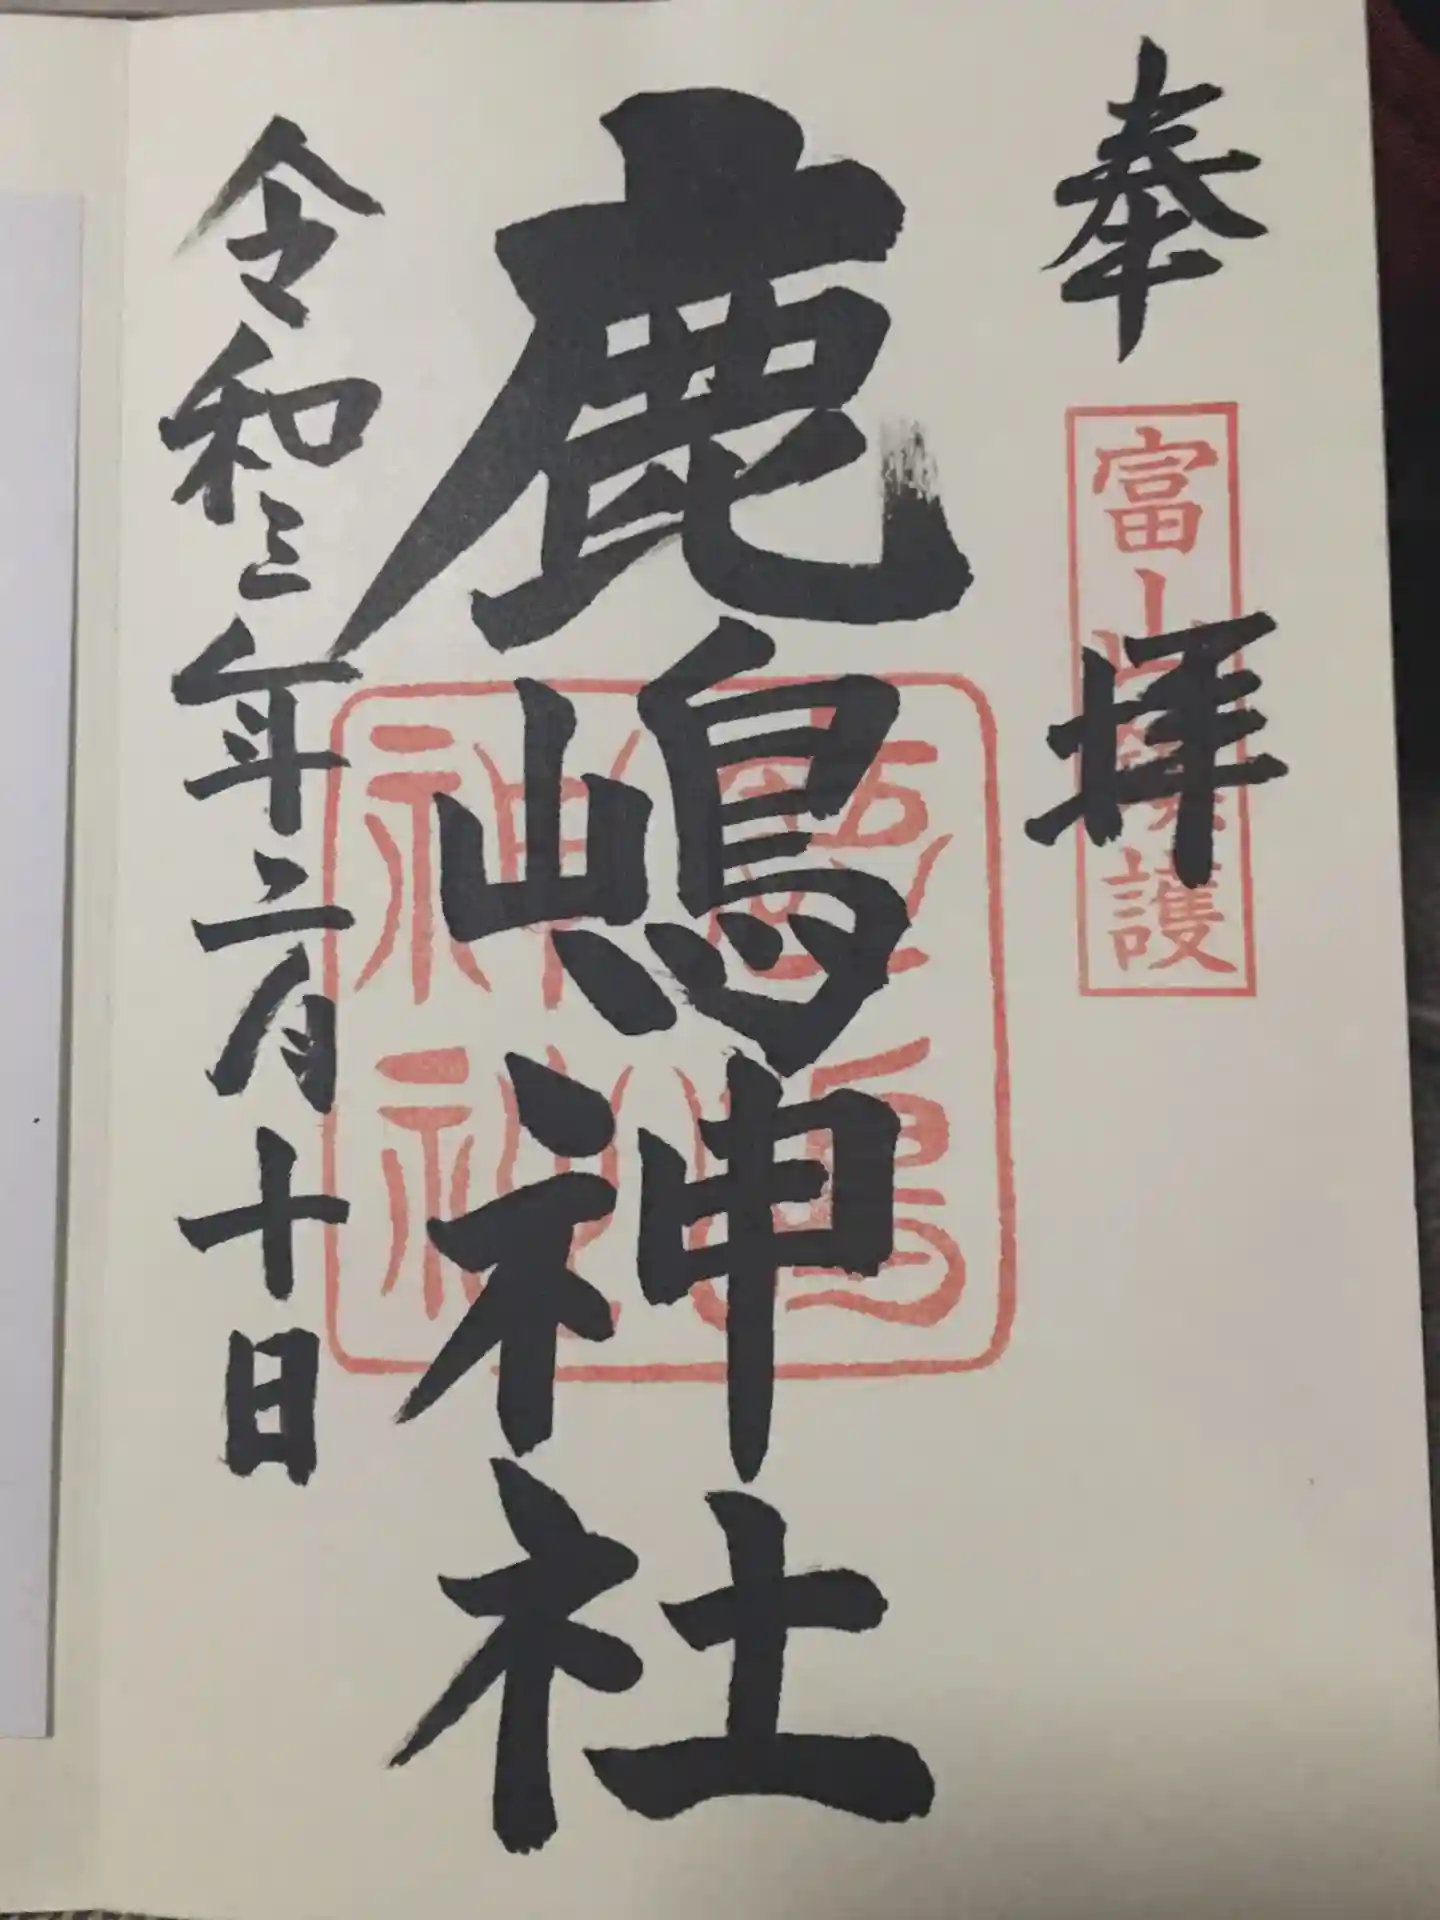 奉拝
富山護
鹿嶋神社
神社
令和三年二月十日